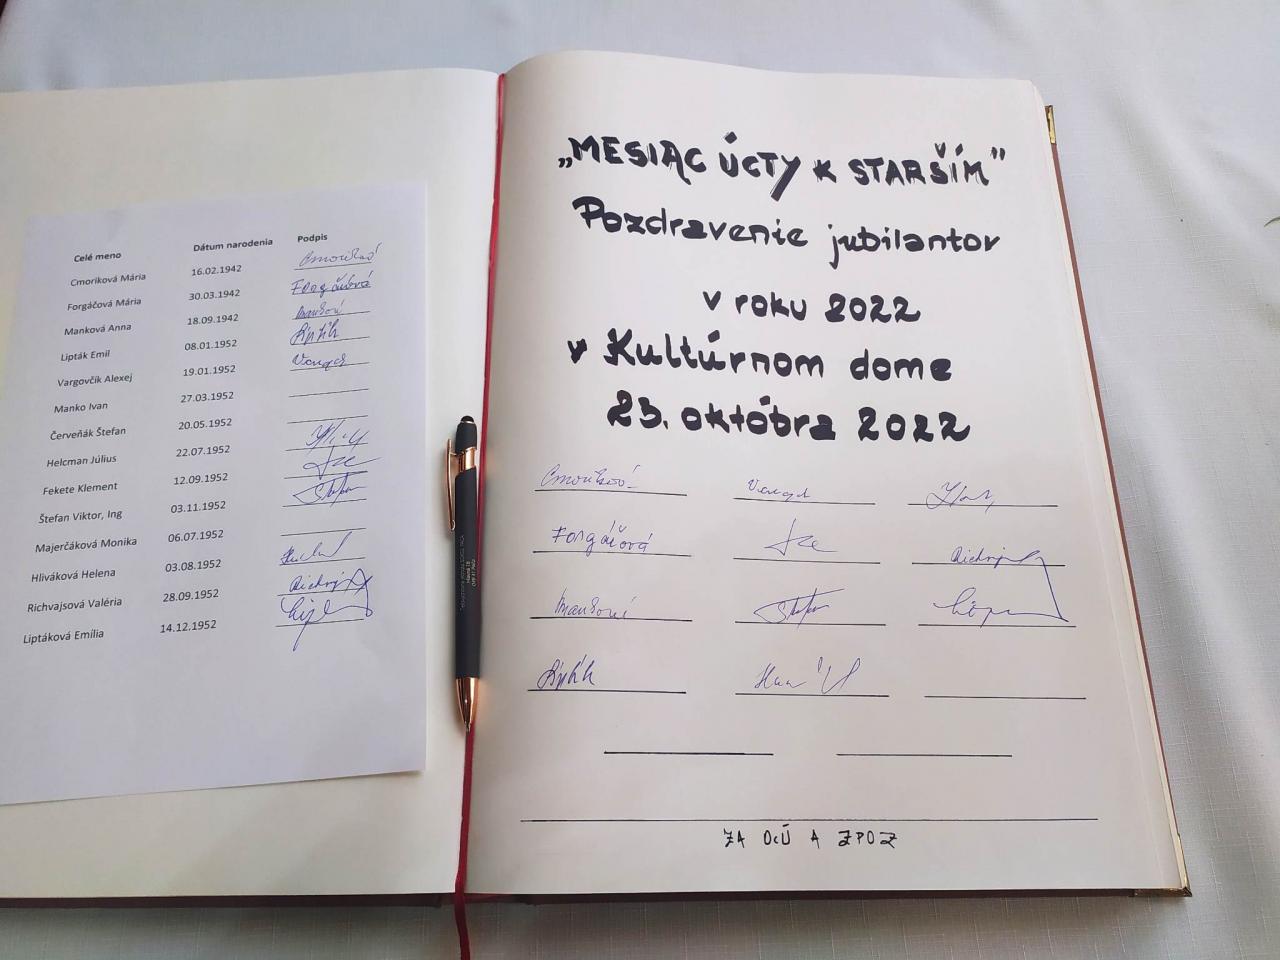 Celé meno Dátum narodenia Podpis
Cmoriková Mária 16.02.1942 Cmoriková
Forgáčová Mária 30.03.1942 Forgáčová
Manková Anna 18.09.1942 Manková
Lipták Emil 08.01.1952 Lipták
Vargovčík Alexej 19.01.1952
Manko Ivan 27.03.1952
Červeňák Štefan 20.05.1952
Helcman Július 22.07.1952
Fekete Klement 12.09.1952
Štefan Viktor, Ing 03.11.1952
Majerčáková Monika 06.07.1952
Hliváková Helena 03.08.1952
Richvajsová Valéria 28.09.1952
Liptáková Emília 14.12.1952
„MESIAC ÚCTY K STARŠÍM"
Pozdravenie jubilantov
v roku 2022
v Kultúrnom dome
23. októbra 2022
Cmoriková
Forgáčová
Manková
Lipták
ZA OCÚ A ZPOZ